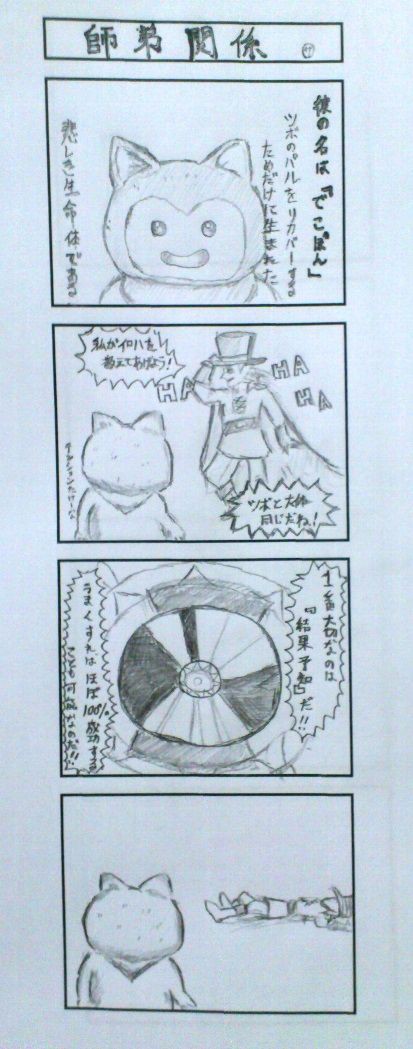 師弟関係 サ
彼の名は「でこぽん」
ツボのパルをリカバーする
ためだけに生まれた
悲しき生命体である
私がイロハを
教えてあげよう!
HA
HA
HA
テンションたけーな
ツボと大体
同じだね!
1番大切なのは
『結果予知』だ!!
うまくすればほぼ100%成功する
ことも可能なのだ!!